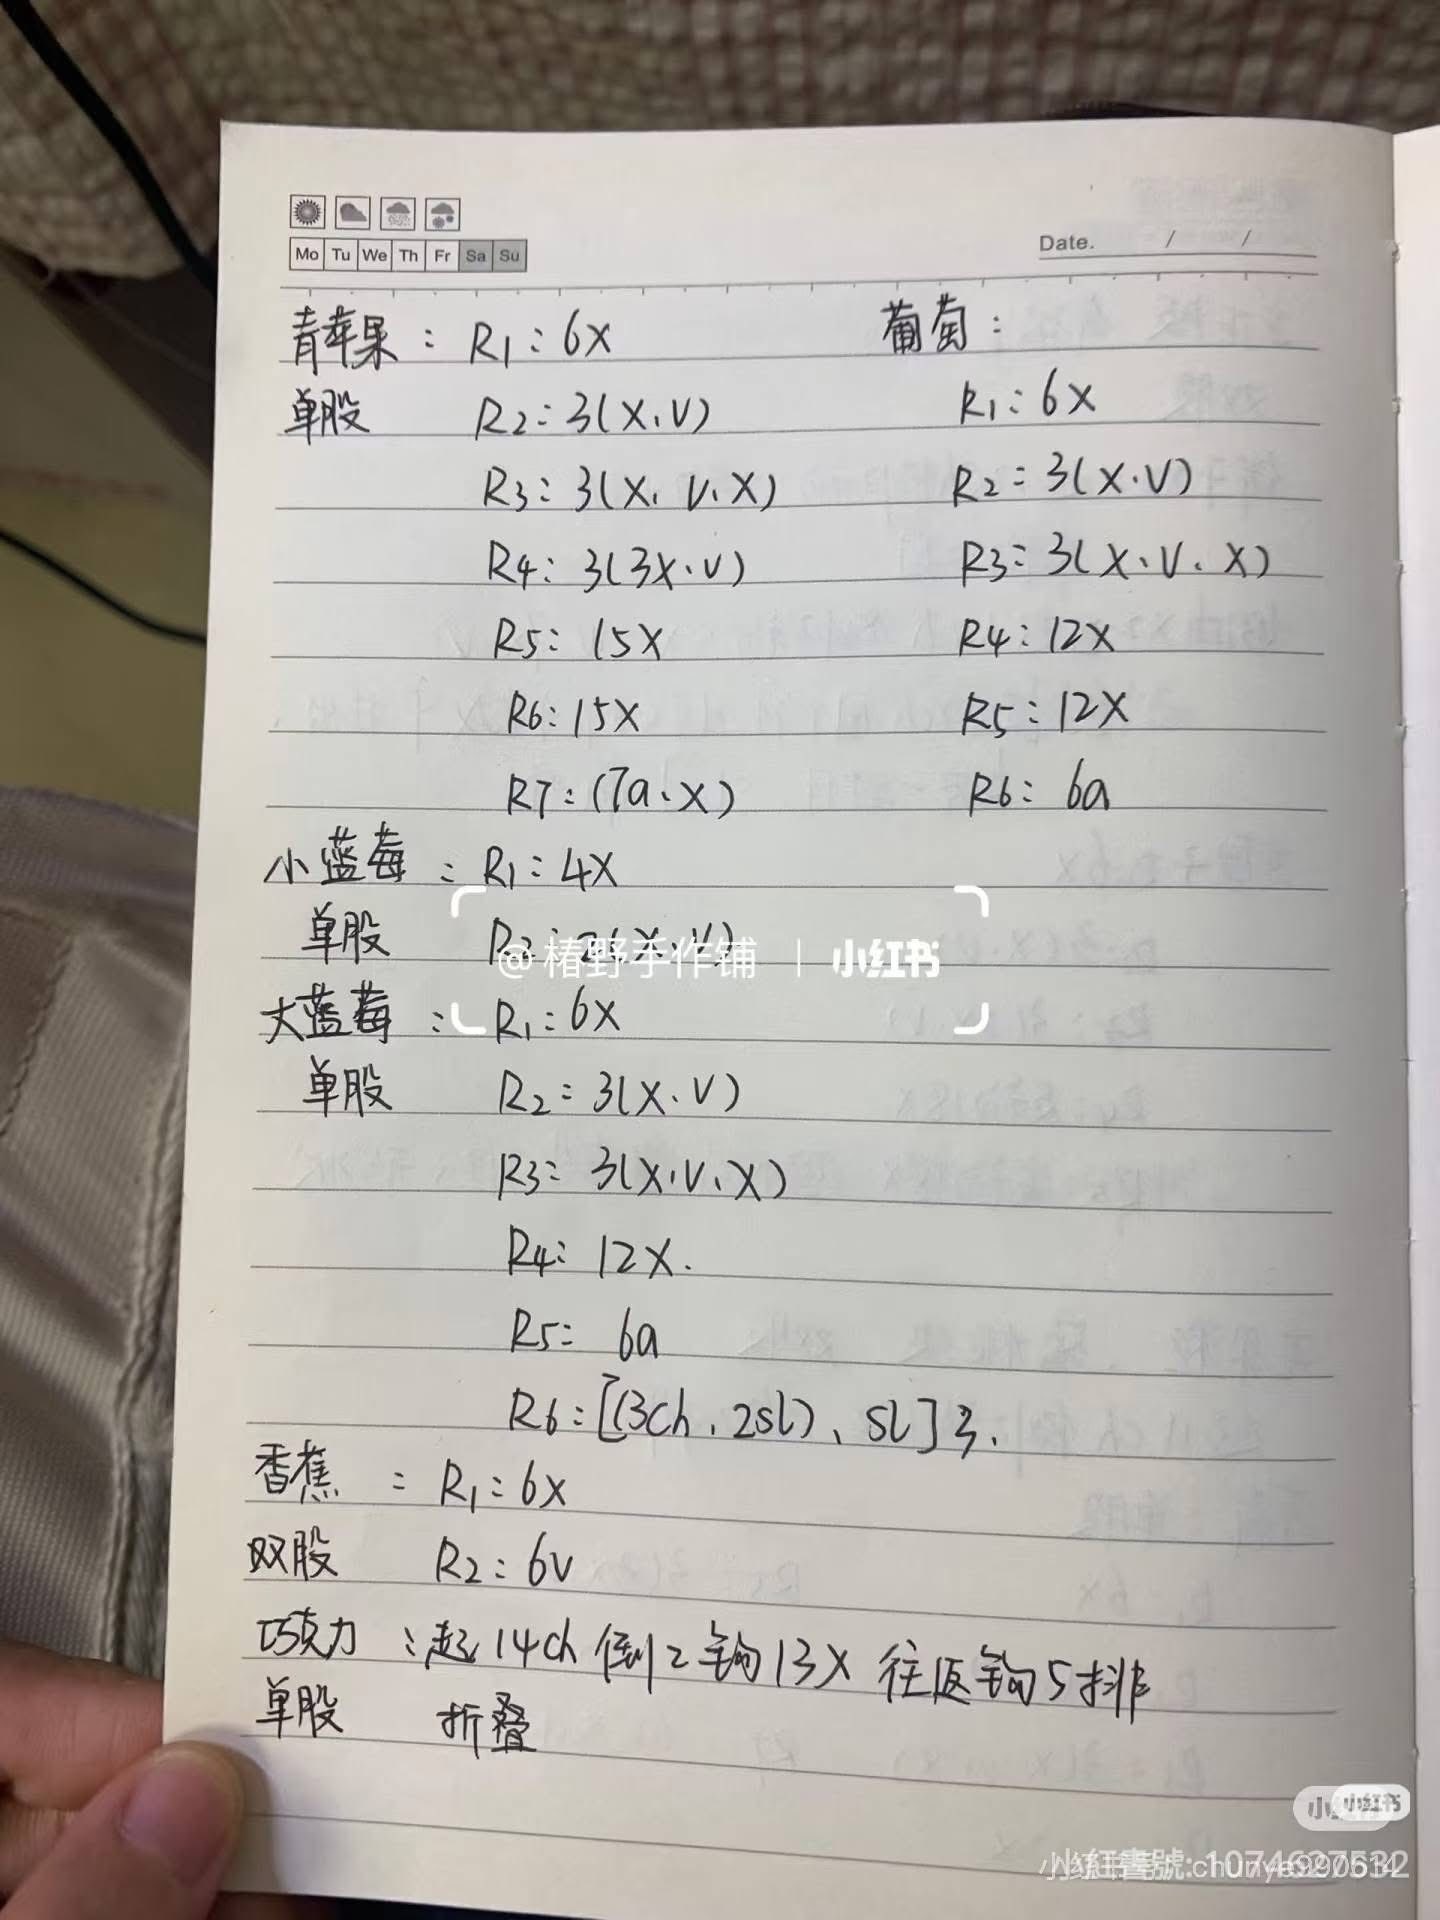 Mo Tu We Th Fr Sa Su
Date. / /
青苹果：R1：6X
单股 R2：3(X、V)
R3：3(X、V、X)
R4：3(3X·V)
R5：15X
R6：15X
R7：(7a·X)
葡萄：
R1：6X
R2：3(X·V)
R3：3(X、V、X)
R4：12X
R5：12X
R6：6a
小蓝莓：R1：4X
单股 R2：2(X·V)
@椿野手作铺 | 小红书
大蓝莓：R1：6X
单股 R2：3(X·V)
R3：3(X、V、X)
R4：12X.
R5：6a
R6：[(3ch、2sl)、sl]3.
香蕉：R1：6X
双股 R2：6V
巧克力：起14ch倒2钩13X往返钩5排
单股 折叠
小红书
小红書號: 1074627532